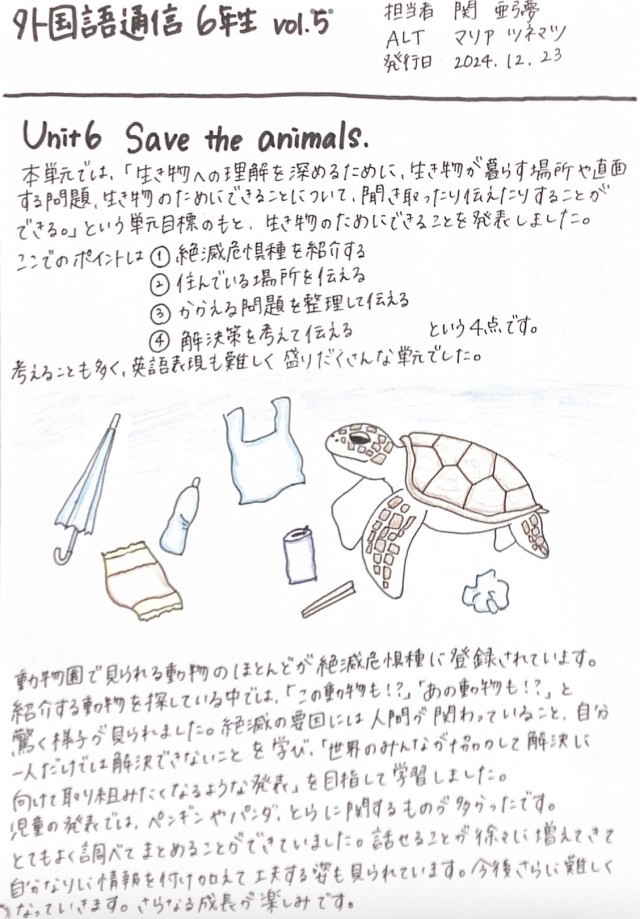 外国語通信 6年生 vol.5
担当者 関 亜弓夢
ALT マリア ツネマツ
発行日 2024.12.23
Unit6 Save the animals.
本単元では、「生き物への理解を深めるために、生き物が暮らす場所や直面
する問題、生き物のためにできることについて、聞き取ったり伝えたりすることが
できる。」という単元目標のもと、生き物のためにできることを発表しました。
ここでのポイントは ① 絶滅危惧種を紹介する
② 住んでいる場所を伝える
③ かかえる問題を整理して伝える
④ 解決策を考えて伝える という4点です。
考えることも多く、英語表現も難しく盛りだくさんな単元でした。
動物園で見られる動物のほとんどが絶滅危惧種に登録されています。
紹介する動物を探している中では、「この動物も!?」「あの動物も!?」と
驚く様子が見られました。絶滅の要因には人間が関わっていること、自分
一人だけでは解決できないことを学び、「世界のみんなが協力して解決に
向けて取り組みたくなるような発表」を目指して学習しました。
児童の発表では、ペンギンやパンダ、とらに関するものが多かったです。
とてもよく調べてまとめることができていました。話せることが徐々に増えてきて
自分なりに情報を付け加えて工夫する姿も見られています。今後さらに難しく
なっていきます。さらなる成長が楽しみです。